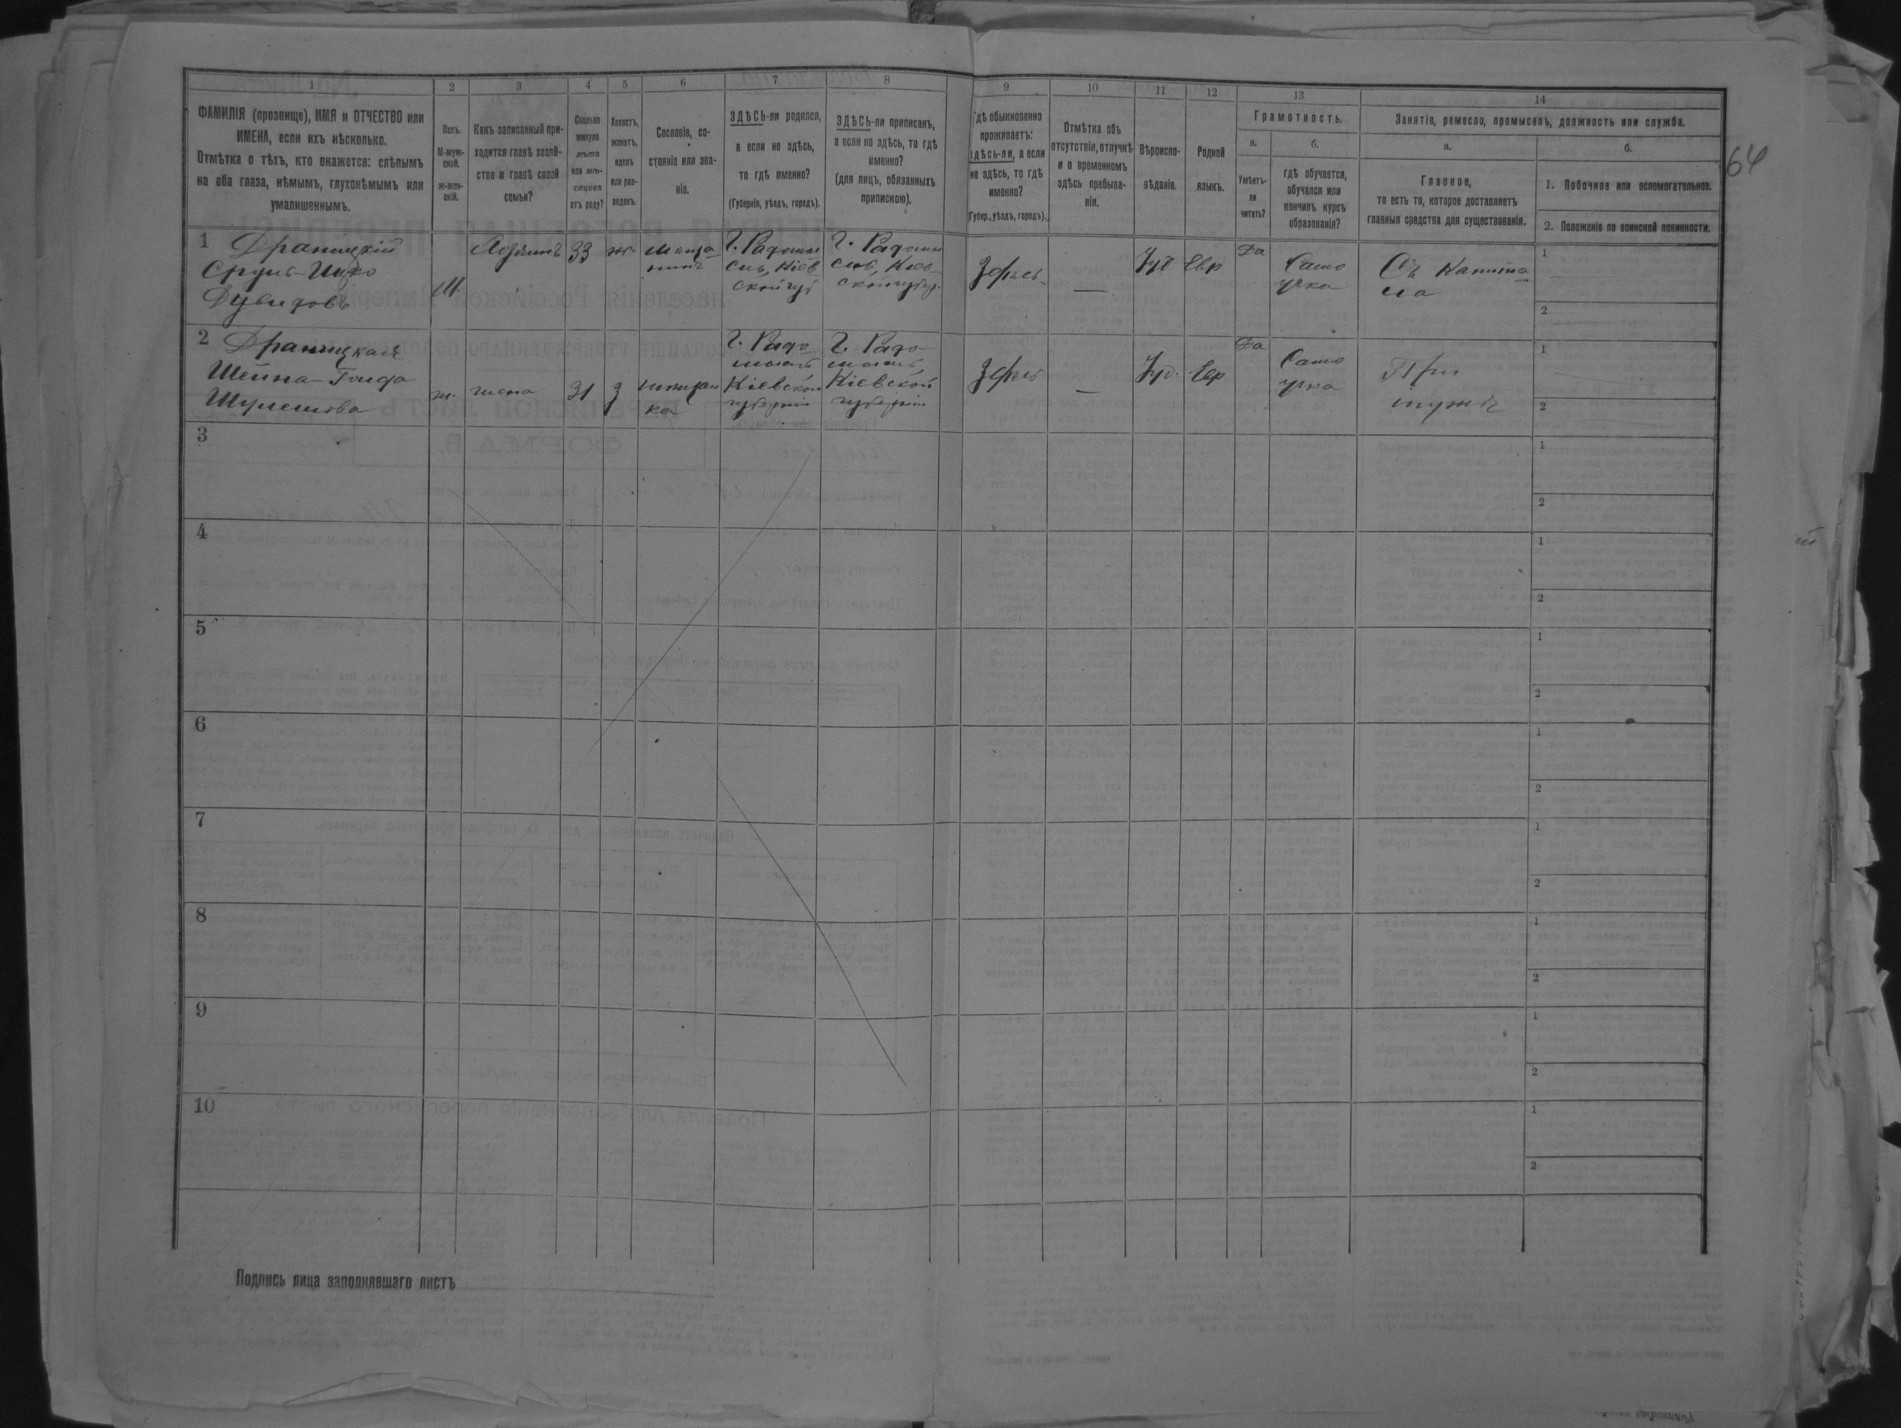 1 2 3 4 5 6 7 8 9 10 11 12 13 14
ФАМИЛІЯ (прозвище), ИМЯ и ОТЧЕСТВО или
ИМЕНА, если ихъ нѣсколько.
Отмѣтка о тѣхъ, кто окажется: слѣпымъ
на оба глаза, нѣмымъ, глухонѣмымъ или
умалишеннымъ.
Полъ.
М-муж-
ской.
ж-жен-
скій.
Какъ записанный при-
ходится главѣ хозяй-
ства и главѣ своей
семьи?
Сколько
минуло
лѣтъ
или мѣ-
сяцевъ
отъ роду?
Холостъ,
женатъ,
вдовъ
или раз-
веденъ.
Сословіе, со-
стояніе или зва-
ніе.
ЗДѢСЬ-ли родился,
а если не здѣсь,
то гдѣ именно?
(Губернія, уѣздъ, городъ).
ЗДѢСЬ-ли приписанъ,
а если не здѣсь, то гдѣ
именно?
(для лицъ, обязанныхъ
припискою).
Гдѣ обыкновенно
проживаетъ:
здѣсь-ли, а если
не здѣсь, то гдѣ
именно?
(Губер., уѣздъ, городъ).
Отмѣтка объ
отсутствіи, отлучкѣ
и о временномъ
здѣсь пребыва-
ніи.
Вѣроиспо-
вѣданіе.
Родной
языкъ.
Грамотность.
а.
Умѣетъ-
ли
читать?
б.
гдѣ обучается,
обучался или
кончилъ курсъ
образованія?
Занятіе, ремесло, промыселъ, должность или служба.
а.
Главное,
то есть то, которое доставляетъ
главныя средства для существованія.
б.
1. Побочное или вспомогательное.
2. Положеніе по воинской повинности.
64
1 Драницкій
Сруль-Ицко
Дувидовъ
М.
Хозяинъ
33
ж.
мѣща-
нинъ
г. Радомы
сль, Кіев
ской губ
г. Радомы
сль, Кіев
ской губер.
Здѣсь
—
Іуд
Евр
Да
Само
учка
Съ капита
ла
1
2
2 Драницкая
Шейна-Гольда
Шулимова
ж.
жена
31
З
мѣщан
ка
г. Радо
мысль
Кіевской
губерніи
г. Радо
мысль,
Кіевской
губерніи
Здѣсь
—
Іуд.
Евр
Да
Само
учка
При
мужѣ
1
2
3
1
2
4
1
2
5
1
2
6
1
2
7
1
2
8
1
2
9
1
2
10
1
2
Подпись лица заполнявшаго листъ